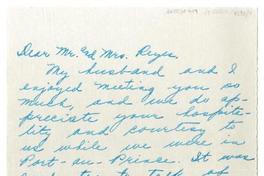 Dear Mr. and Mrs. Reyes,
My husband and I
enjoyed meeting you so
much, and we do ap-
preciate your hospita-
lity and courtesy to
us while we were in
Port-au-Prince. It was
to talk of